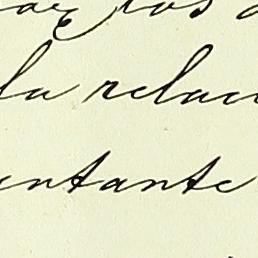 los
la relac
entante